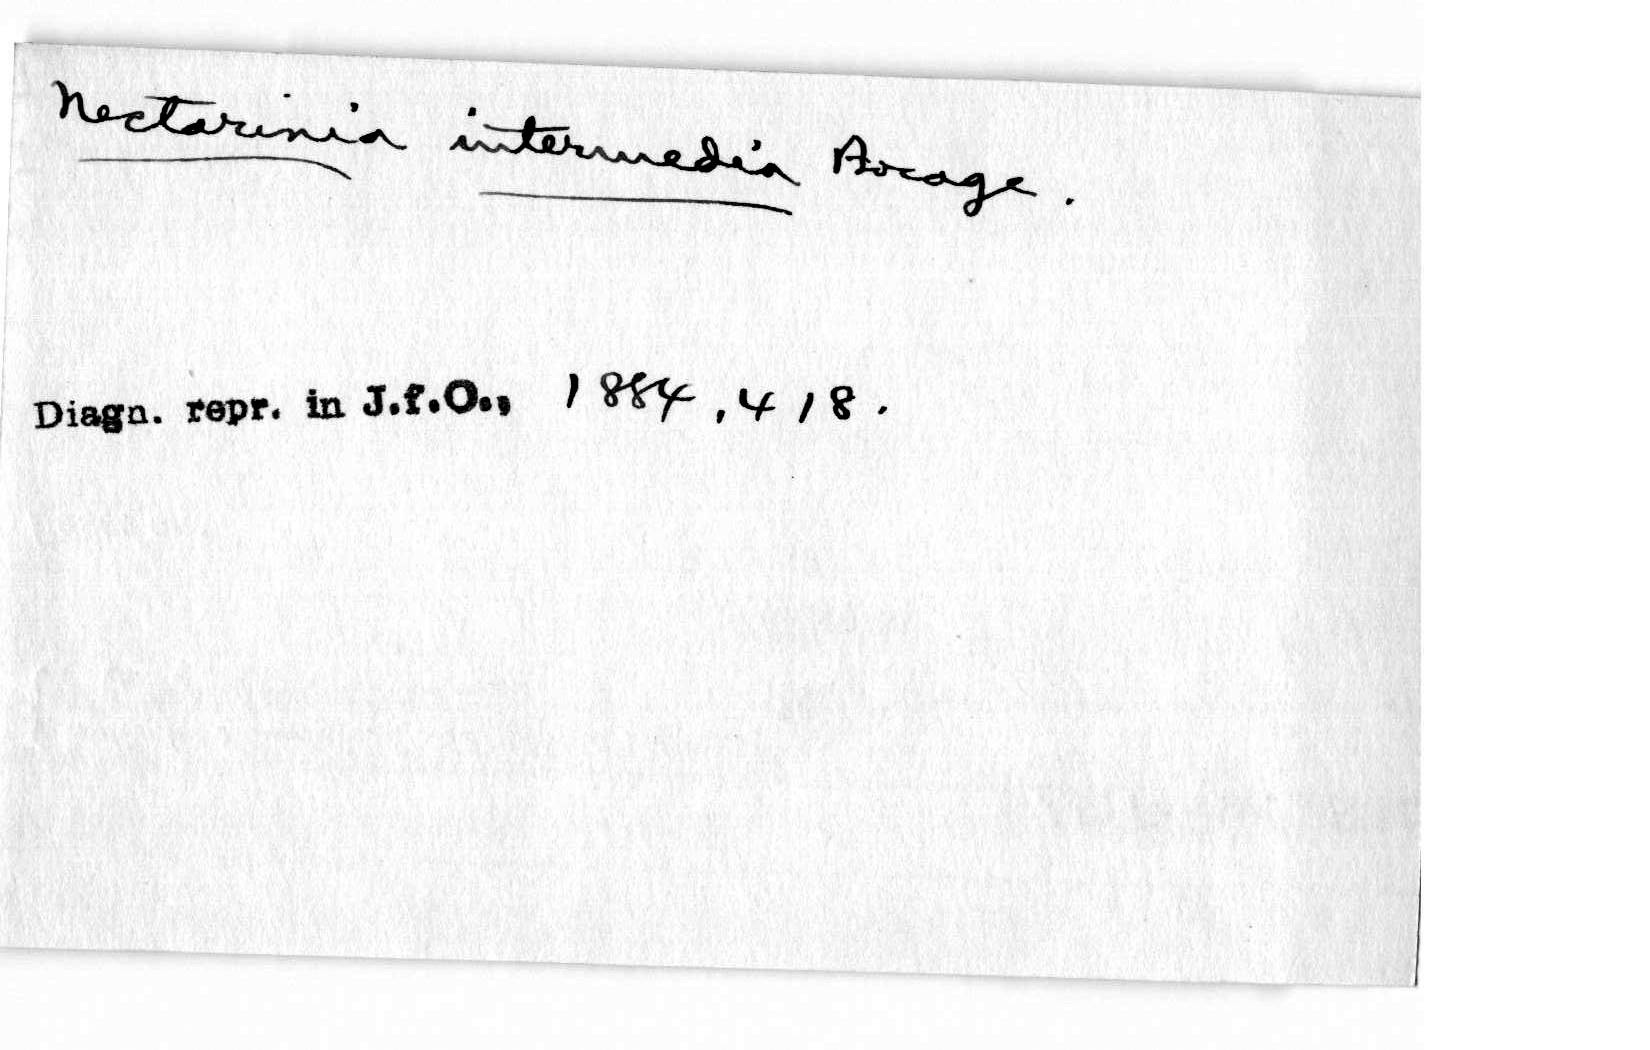 Nectarinia intermedia Bocage.
Diagn. repr. in J.f.O., 1884, 418.